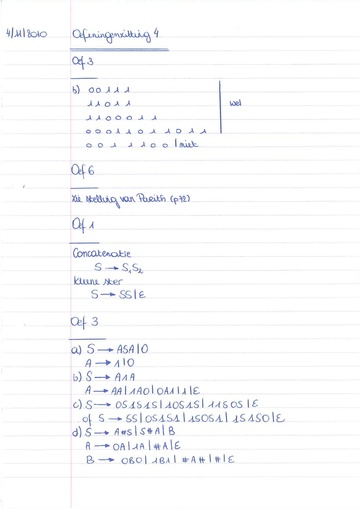 4/11/2010 Oefeningenzitting 4
Oef 3
b) 00111
11011
1100011 wel
00011011011
0011100 | niet
Oef 6
zie stelling van Parikh (p72)
Oef 1
Concatenatie
S → S₁S₂
kleene ster
S → SS|ε
Oef 3
a) S → ASA|0
A → 1|0
b) S → A1A
A → AA|1A0|0A1|1|ε
c) S → 0S1S1S|10S1S|11S0S|ε
of S → SS|0S1S1|1S0S1|1S1S0|ε
d) S → A#S|S#A|B
A → 0A|1A|#A|ε
B → 0B0|1B1|#A#|#|ε